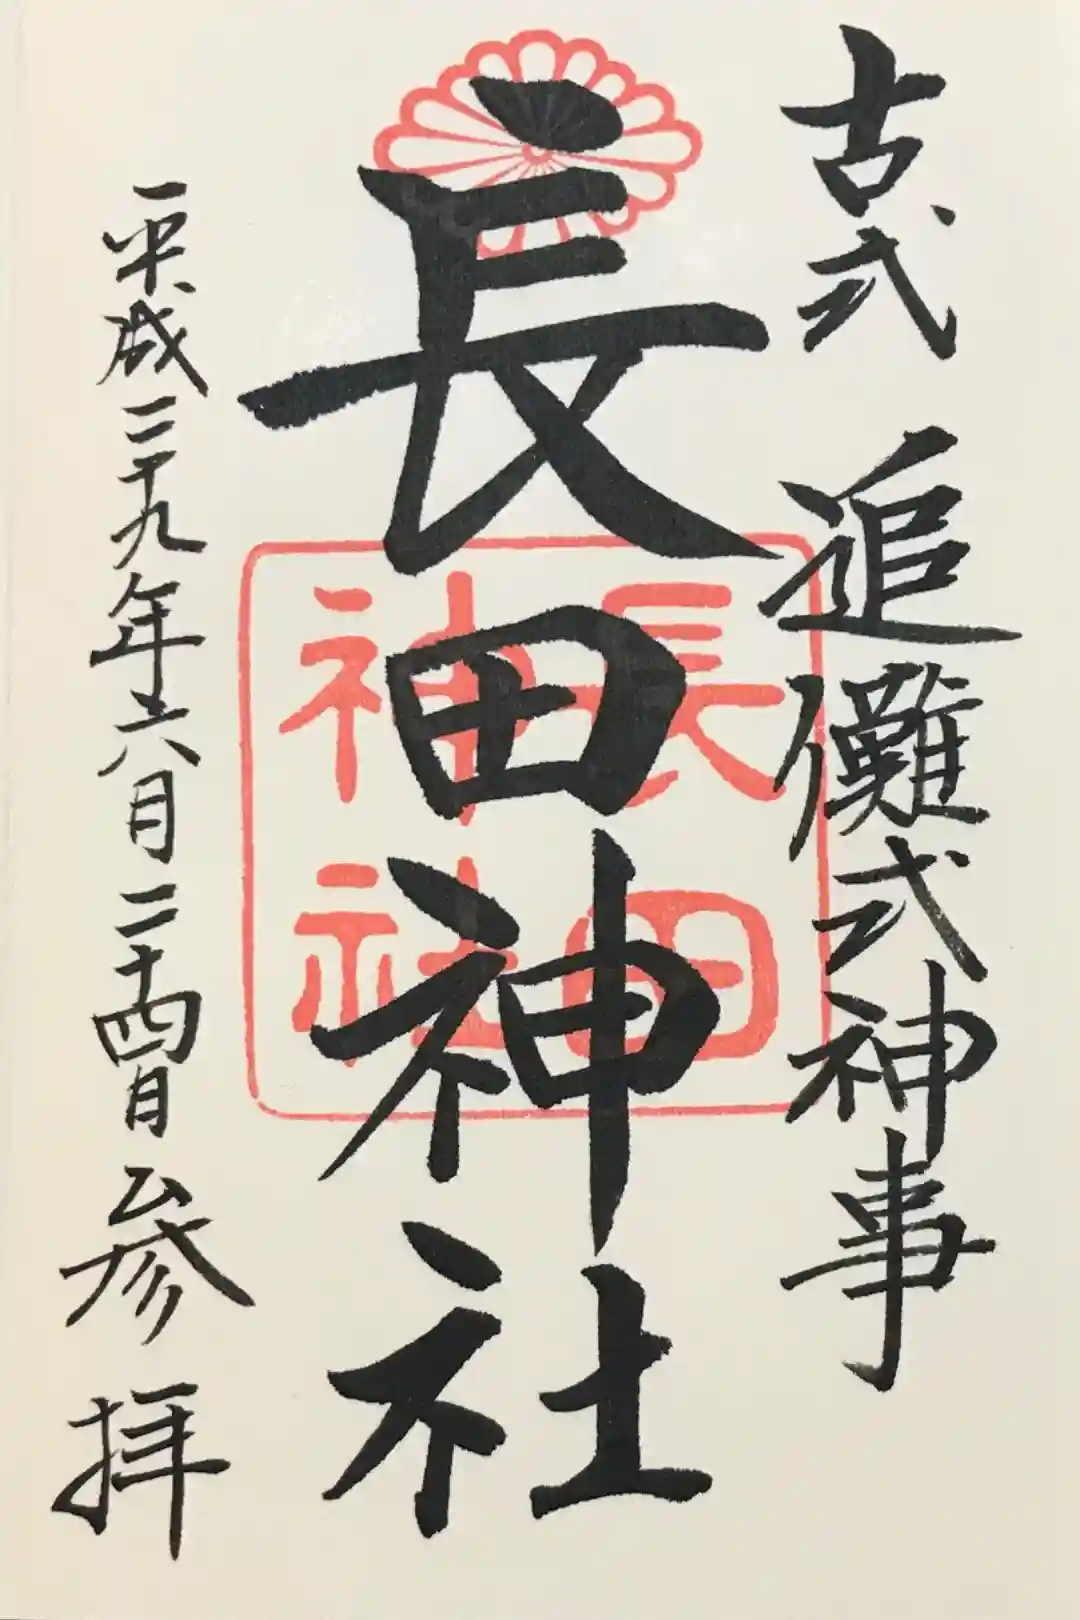 古式 追儺式神事
長田神社
長田
神社
平成二十九年六月二十四日 参拝